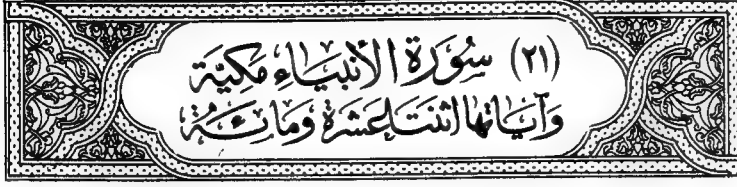 (٢١) سُورَة الأنبيَاء مَكِيَّة
وَآيَاتهَا اثنَتَا عَشرَة وَمَائَة